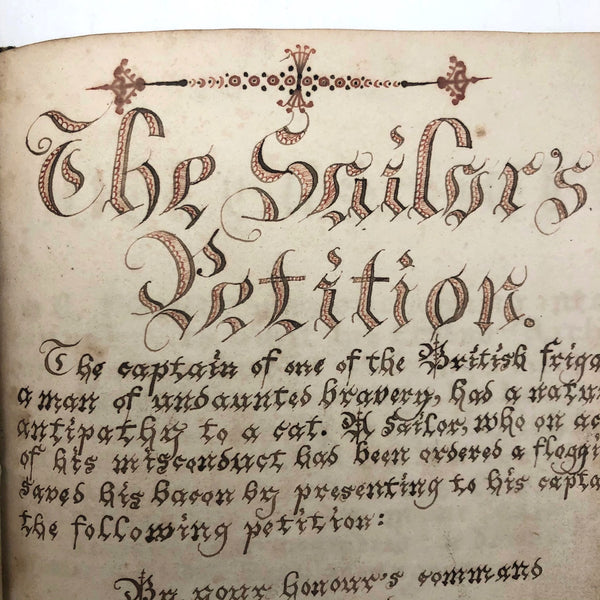 The Sailor's
Petition.
The captain of one of the British friga
a man of undaunted bravery, had a natu
antipathy to a cat. A Sailor, who on ac
of his misconduct had been ordered a floggi
saved his bacon by presenting to his capta
the following petition:
By your honour's command